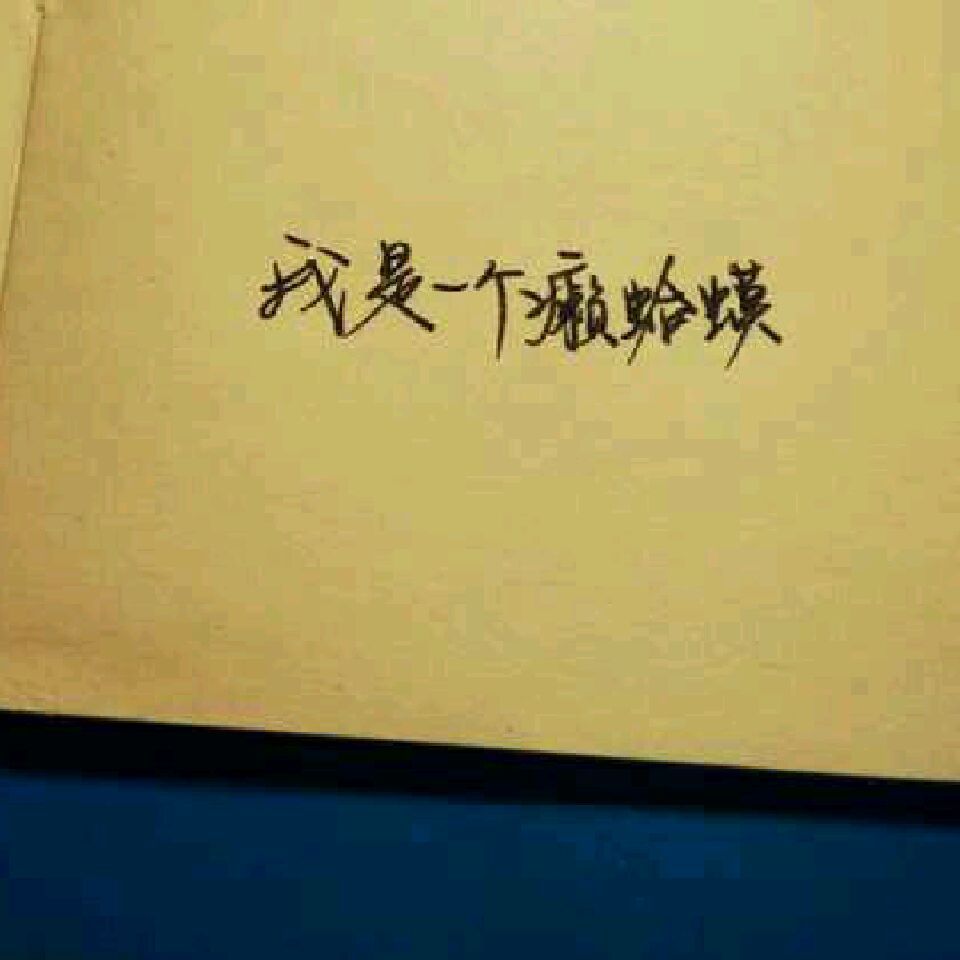 我是一个癞蛤蟆